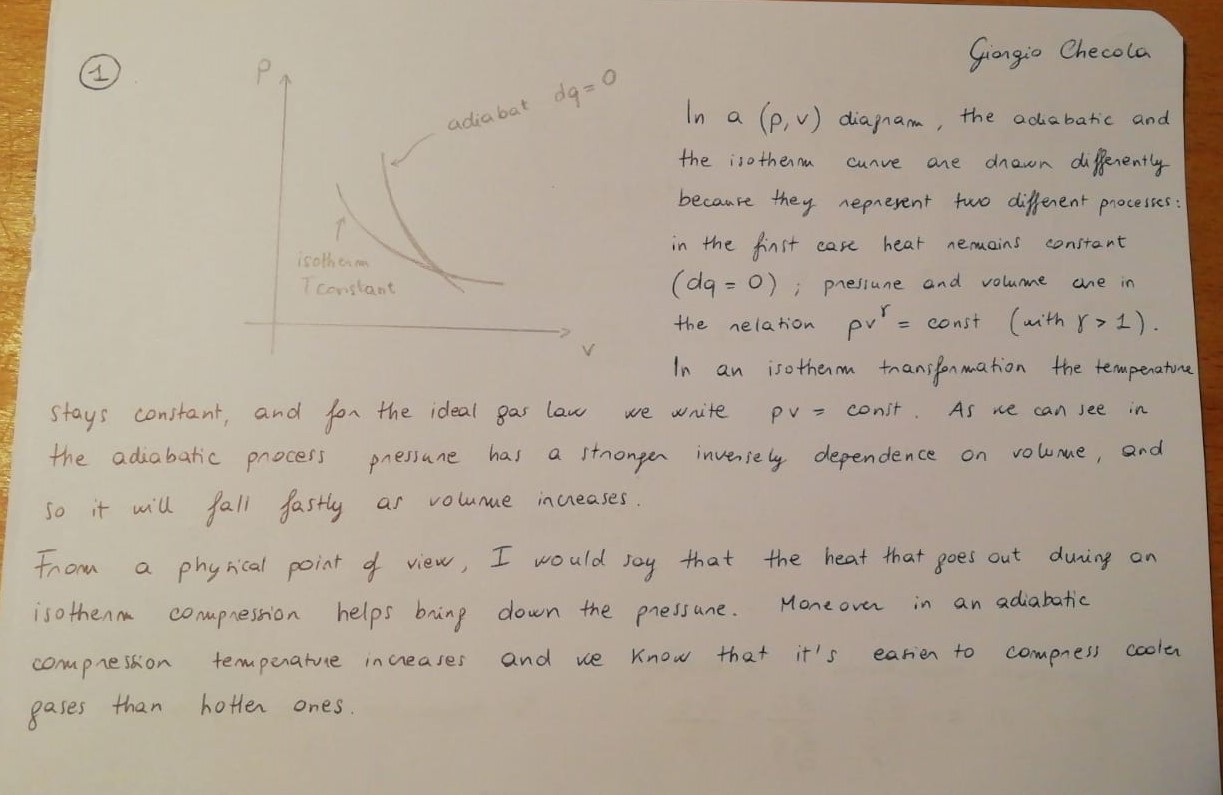 Giorgio Checola
1
P
adiabat dq = 0
isotherm
T constant
v
In a (p, v) diagram, the adiabatic and
the isotherm curve are drawn differently
because they represent two different processes:
in the first case heat remains constant
(dq = 0); pressure and volume are in
the relation pv^γ = const (with γ > 1).
In an isotherm transformation the temperature
stays constant, and for the ideal gas law we write pv = const. As we can see in
the adiabatic process pressure has a stronger inversely dependence on volume, and
so it will fall fastly as volume increases.
From a physical point of view, I would say that the heat that goes out during an
isotherm compression helps bring down the pressure. Moreover in an adiabatic
compression temperature increases and we know that it's easier to compress cooler
gases than hotter ones.